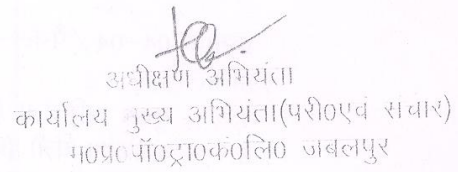 अधीक्षण अभियंता
कार्यालय मुख्य अभियंता(परी0एवं संचार)
म0प्र0पॉ0ट्रा0कं0लि0 जबलपुर